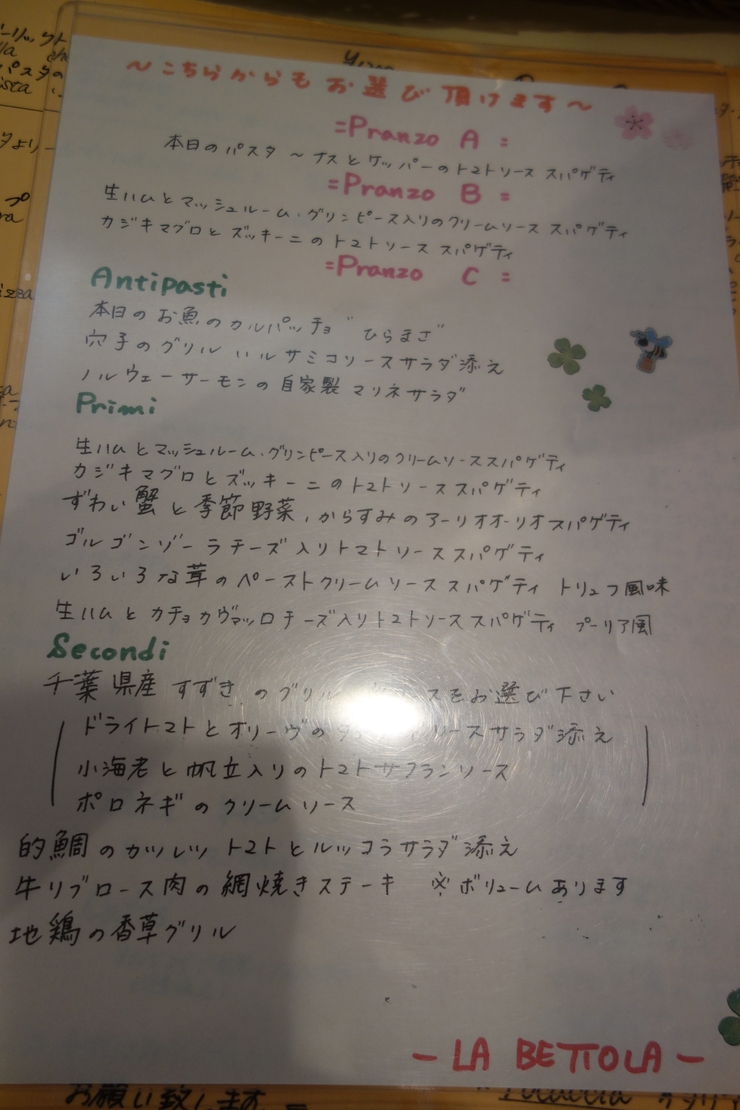 ～こちらからもお選び頂けます～
=Pranzo A=
本日のパスタ ～ ナスとケッパーのトマトソース スパゲティ
=Pranzo B=
生ハムとマッシュルーム・グリンピース入りのクリームソース スパゲティ
カジキマグロとズッキーニのトマトソース スパゲティ
=Pranzo C=
Antipasti
本日のお魚のカルパッチョ "ひらまさ"
穴子のグリル バルサミコソースサラダ添え
ノルウェーサーモンの自家製マリネサラダ
Primi
生ハムとマッシュルーム・グリンピース入りのクリームソーススパゲティ
カジキマグロとズッキーニのトマトソーススパゲティ
ずわい蟹と季節野菜、からすみのアーリオオーリオスパゲティ
ゴルゴンゾーラチーズ入りトマトソーススパゲティ
いろいろな茸のペーストクリームソーススパゲティ トリュフ風味
生ハムとカチョカヴァッロチーズ入りトマトソーススパゲティ プーリア風
Secondi
千葉県産すずきのグリル スをお選び下さい
ドライトマトとオリーヴの ソースサラダ添え
小海老と帆立入りのトマトサフランソース
ポロネギのクリームソース
的鯛のカツレツ トマトとルッコラサラダ添え
牛リブロース肉の網焼きステーキ ※ボリュームあります
地鶏の香草グリル
－LA BETTOLA－
お願い致します